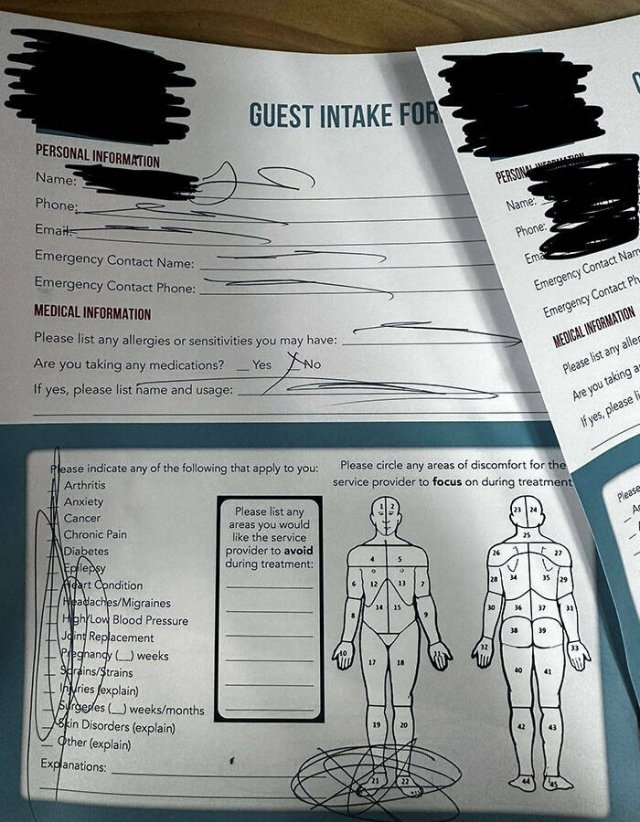 GUEST INTAKE FOR
PERSONAL INFORMATION
Name:
Phone:
Email:
Emergency Contact Name:
Emergency Contact Phone:
MEDICAL INFORMATION
Please list any allergies or sensitivities you may have:
Are you taking any medications? __ Yes __ No
If yes, please list name and usage:
Please indicate any of the following that apply to you:
Arthritis
Anxiety
Cancer
Chronic Pain
Diabetes
Epilepsy
Heart Condition
Headaches/Migraines
High/Low Blood Pressure
Joint Replacement
Pregnancy (__) weeks
Sprains/Strains
Injuries (explain)
Surgeries (__) weeks/months
Skin Disorders (explain)
Other (explain)
Explanations:
Please list any
areas you would
like the service
provider to avoid
during treatment:
Please circle any areas of discomfort for the
service provider to focus on during treatment
1 2
4 5
6 12 13 7
14 15
8 9
10 11
17 18
19 20
21 22
23 24
25
26 27
28 34 35 29
30 36 37 31
38 39
32 33
40 41
42 43
44 45
PERSONAL INFORMATION
Name:
Phone:
Ema
Emergency Contact Nam
Emergency Contact Ph
MEDICAL INFORMATION
Please list any aller
Are you taking a
If yes, please li
Please
Ar